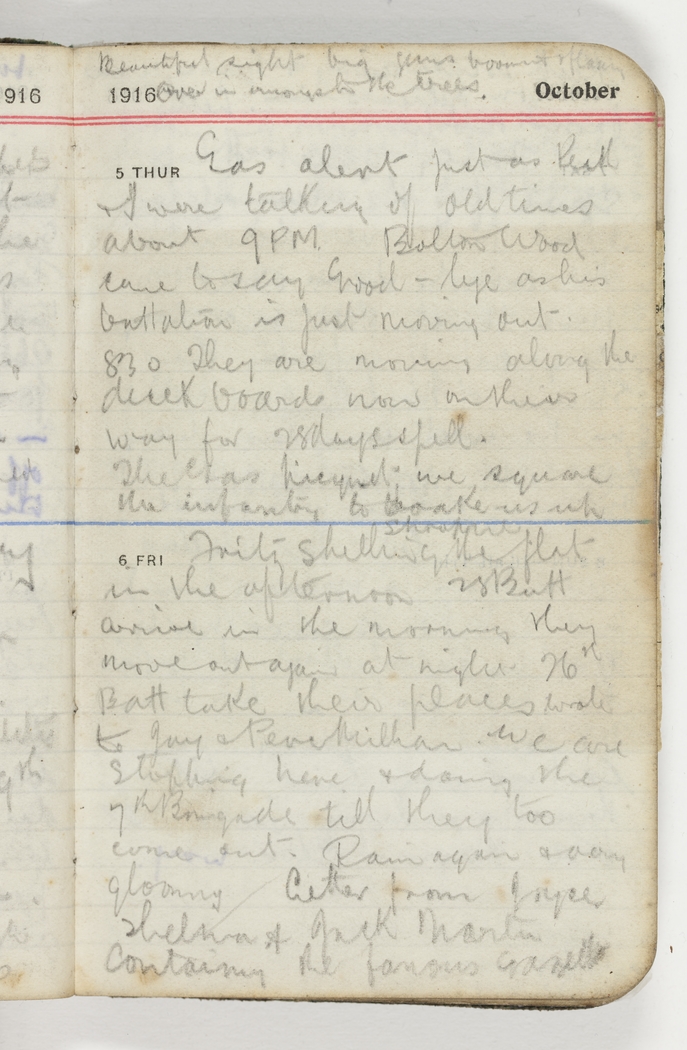 Beautiful sight big guns booming &
over in amongst the trees.
916
1916
October
5 THUR
Gas alert just as
& I were talking of old times
about 9 PM. Bolton Wood
came to say Good-bye as his
battalion is just moving out.
830 They are moving along the
duck boards now on their
way for 28 days spell.
The Gas picquet; we square
the infantry to wake us up
6 FRI
shrapnel
Fritz shelling the flat
in the afternoon 28 Batt
arrive in the morning they
move out again at night 26th
Batt take their places wrote
to Guy & We are
Stopping here & doing the
7th Brigade till they too
come out. Rain again & very
gloomy Letter from Joyce,
Thelma & Jack Martin
Containing the famous Gazette